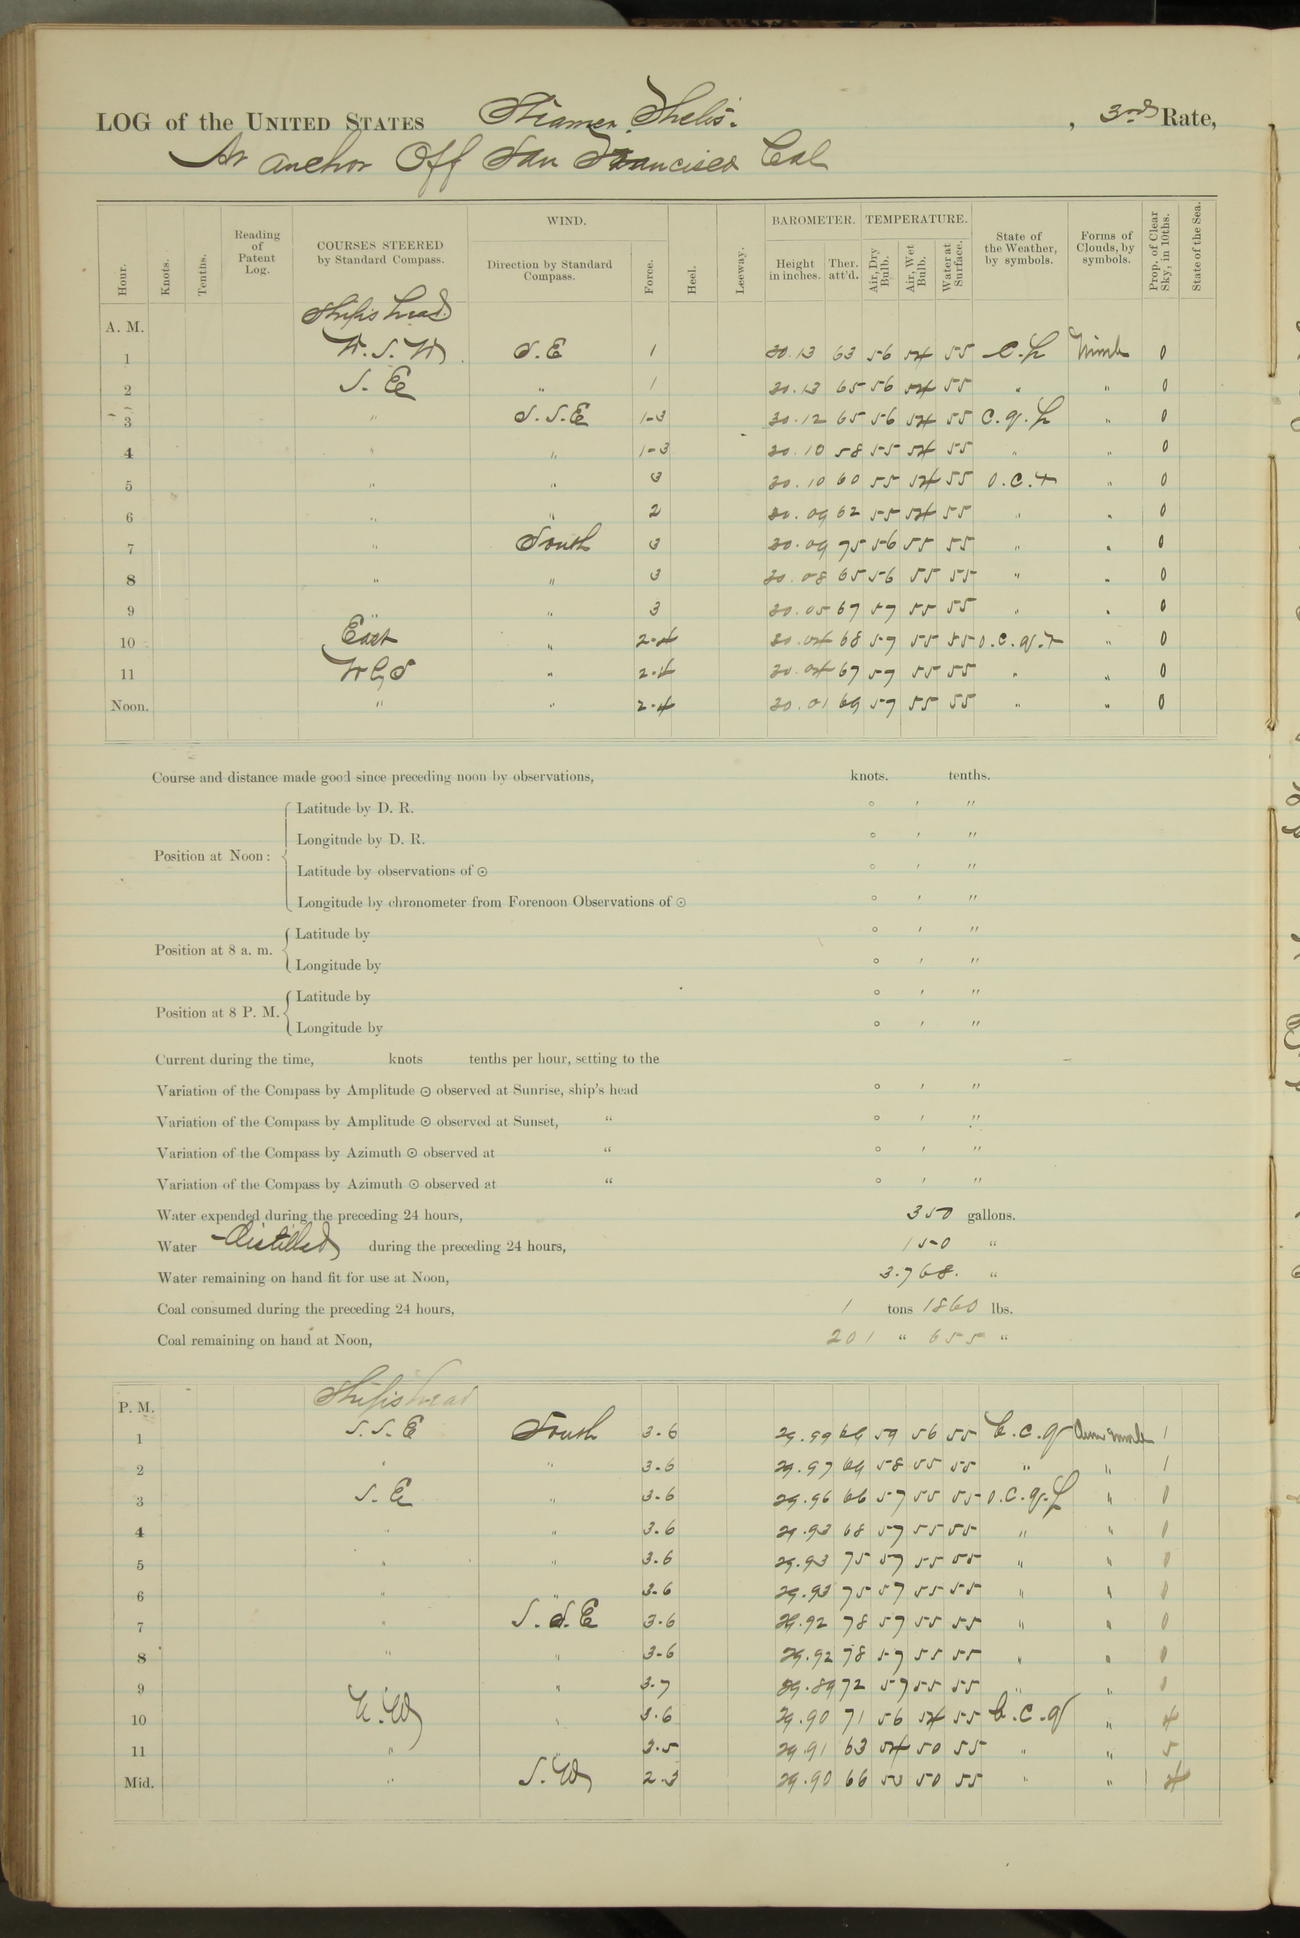 LOG of the UNITED STATES Steamer Thetis. , 3rd Rate,
At anchor Off San Francisco Cal
Hour. Knots. Tenths. Reading of Patent Log. COURSES STEERED by Standard Compass. WIND. Direction by Standard Compass. Force. Heel. Leeway. BAROMETER. Height in inches. Ther. att'd. TEMPERATURE. Air, Dry Bulb. Air, Wet Bulb. Water at Surface. State of the Weather, by symbols. Forms of Clouds, by symbols. Prop. of Clear Sky, in 10ths. State of the Sea.
A. M. Ship's head
1 W.S.W S.E 1 30.13 63 56 54 55 Nimb 0
2 S.E " 1 30.13 65 56 54 55 " " 0
3 " S.S.E 1-3 30.12 65 56 54 55 " 0
4 " " 1-3 30.10 58 55 54 55 " " 0
5 " " 3 30.10 60 55 54 55 " 0
6 " " 2 30.09 62 55 54 55 " " 0
7 " South 3 30.09 75 56 55 55 " " 0
8 " " 3 30.08 65 56 55 55 " " 0
9 " " 3 30.05 67 57 55 55 " " 0
10 East " 2-4 30.04 68 57 55 55 " 0
11 " 2-4 30.04 67 57 55 55 " " 0
Noon. " " 2-4 30.01 69 57 55 55 " " 0
Course and distance made good since preceding noon by observations, knots. tenths.
Position at Noon: Latitude by D. R. ° ′ ″
Longitude by D. R. ° ′ ″
Latitude by observations of ⊙ ° ′ ″
Longitude by chronometer from Forenoon Observations of ⊙ ° ′ ″
Position at 8 a. m. Latitude by ° ′ ″
Longitude by ° ′ ″
Position at 8 P. M. Latitude by ° ′ ″
Longitude by ° ′ ″
Current during the time, knots tenths per hour, setting to the
Variation of the Compass by Amplitude ⊙ observed at Sunrise, ship's head ° ′ ″
Variation of the Compass by Amplitude ⊙ observed at Sunset, " ° ′ ″
Variation of the Compass by Azimuth ⊙ observed at " ° ′ ″
Variation of the Compass by Azimuth ⊙ observed at " ° ′ ″
Water expended during the preceding 24 hours, 350 gallons.
Water Distilled during the preceding 24 hours, 150 "
Water remaining on hand fit for use at Noon, 3.768. "
Coal consumed during the preceding 24 hours, 1 tons 1860 lbs.
Coal remaining on hand at Noon, 201 " 655 "
P. M. Ship's head
1 S.S.E South 3-6 29.99 69 59 56 55 b.c.q 1
2 " " 3-6 29.97 69 58 55 55 " " 1
3 S.E " 3-6 29.96 66 57 55 55 " 0
4 " " 3-6 29.93 68 57 55 55 " " 0
5 " " 3-6 29.93 75 57 55 55 " " 0
6 " " 3-6 29.93 75 57 55 55 " " 0
7 " S.S.E 3-6 29.92 78 57 55 55 " " 0
8 " " 3-6 29.92 78 57 55 55 " " 0
9 " 3-7 29.89 72 57 55 55 " " 0
10 " 3-6 29.90 71 56 54 55 b.c.q " 4
11 " " 3-5 29.91 63 54 50 55 " " 5
Mid. " S.W 2-3 29.90 66 53 50 55 " " 4